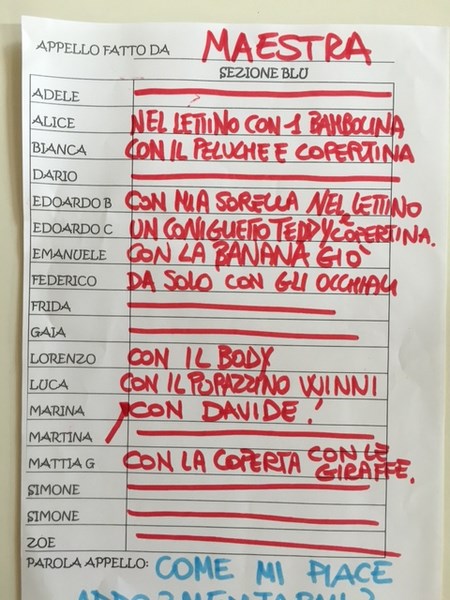 APPELLO FATTO DA MAESTRA
SEZIONE BLU
ADELE
ALICE NEL LETTINO CON 1 BAMBOLINA
BIANCA CON IL PELUCHE E COPERTINA
DARIO
EDOARDO B CON MIA SORELLA NEL LETTINO
EDOARDO C UN CONIGLIETTO TEDDY E COPERTINA.
EMANUELE CON LA BANANA GIÒ
FEDERICO DA SOLO CON GLI OCCHIALI
FRIDA
GAIA
LORENZO CON IL BODY
LUCA CON IL PUPAZZINO WINNI
MARINA CON DAVIDE!
MARTINA
MATTIA G CON LA COPERTA CON LE GIRAFFE.
SIMONE
SIMONE
ZOE
PAROLA APPELLO: COME MI PIACE
ADDORMENTARMI?